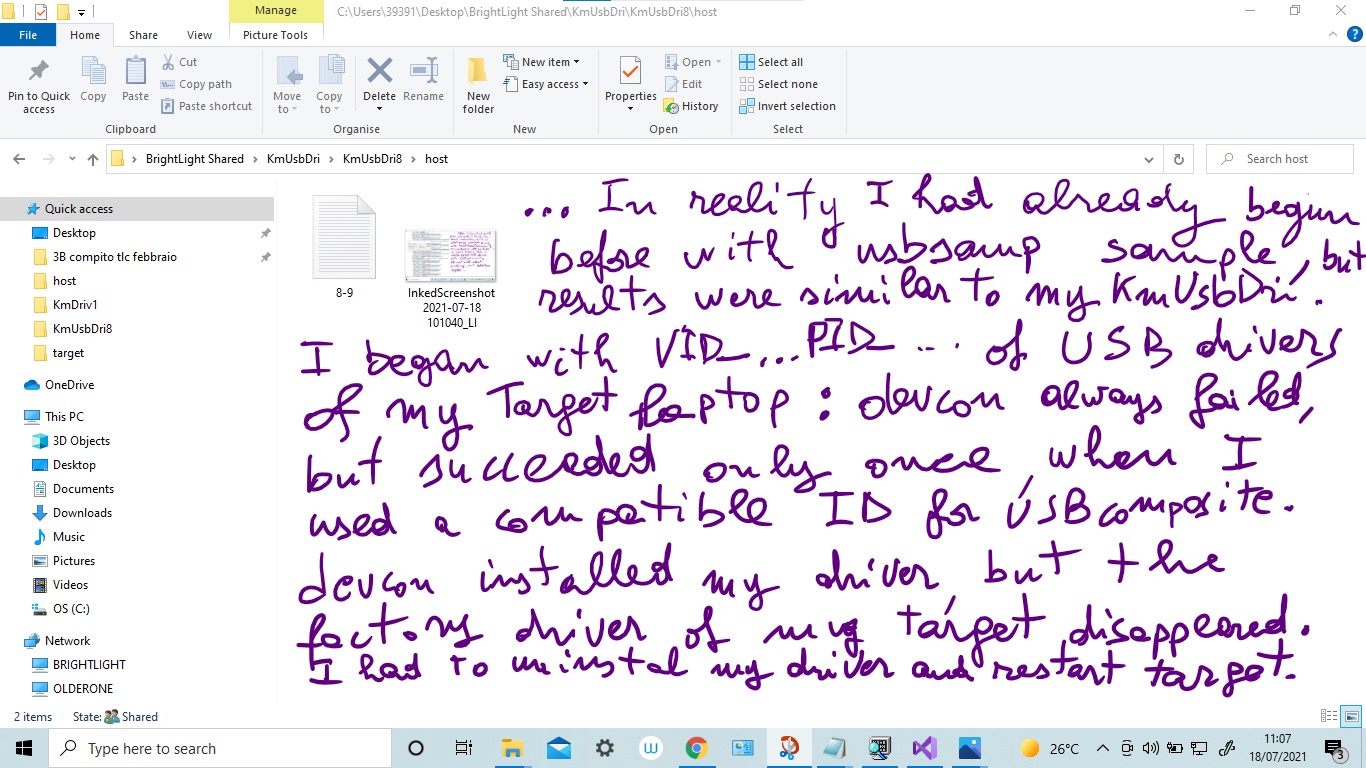 Manage
C:\Users\39391\Desktop\BrightLight Shared\KmUsbDri\KmUsbDri8\host
File
Home
Share
View
Picture Tools
Pin to Quick access
Copy
Paste
Cut
Copy path
Paste shortcut
Clipboard
Move to
Copy to
Delete
Rename
Organise
New folder
New item
Easy access
New
Properties
Open
Edit
History
Open
Select all
Select none
Invert selection
Select
BrightLight Shared > KmUsbDri > KmUsbDri8 > host
Search host
Quick access
Desktop
3B compito tlc febbraio
host
KmDriv1
KmUsbDri8
target
OneDrive
This PC
3D Objects
Desktop
Documents
Downloads
Music
Pictures
Videos
OS (C:)
Network
BRIGHTLIGHT
OLDERONE
8-9
InkedScreenshot
2021-07-18
101040_LI
... In reality I had already begun
before with usbsamp sample, but
results were similar to my KmUsbDri.
I began with VID_...PID_... of USB drivers
of my Target laptop: devcon always failed,
but succeeded only once, when I
used a compatible ID for USBcomposite.
devcon installed my driver but the
factory driver of my target disappeared.
I had to uninstal my driver and restart target.
2 items
State: Shared
Type here to search
26°C
11:07
18/07/2021
3